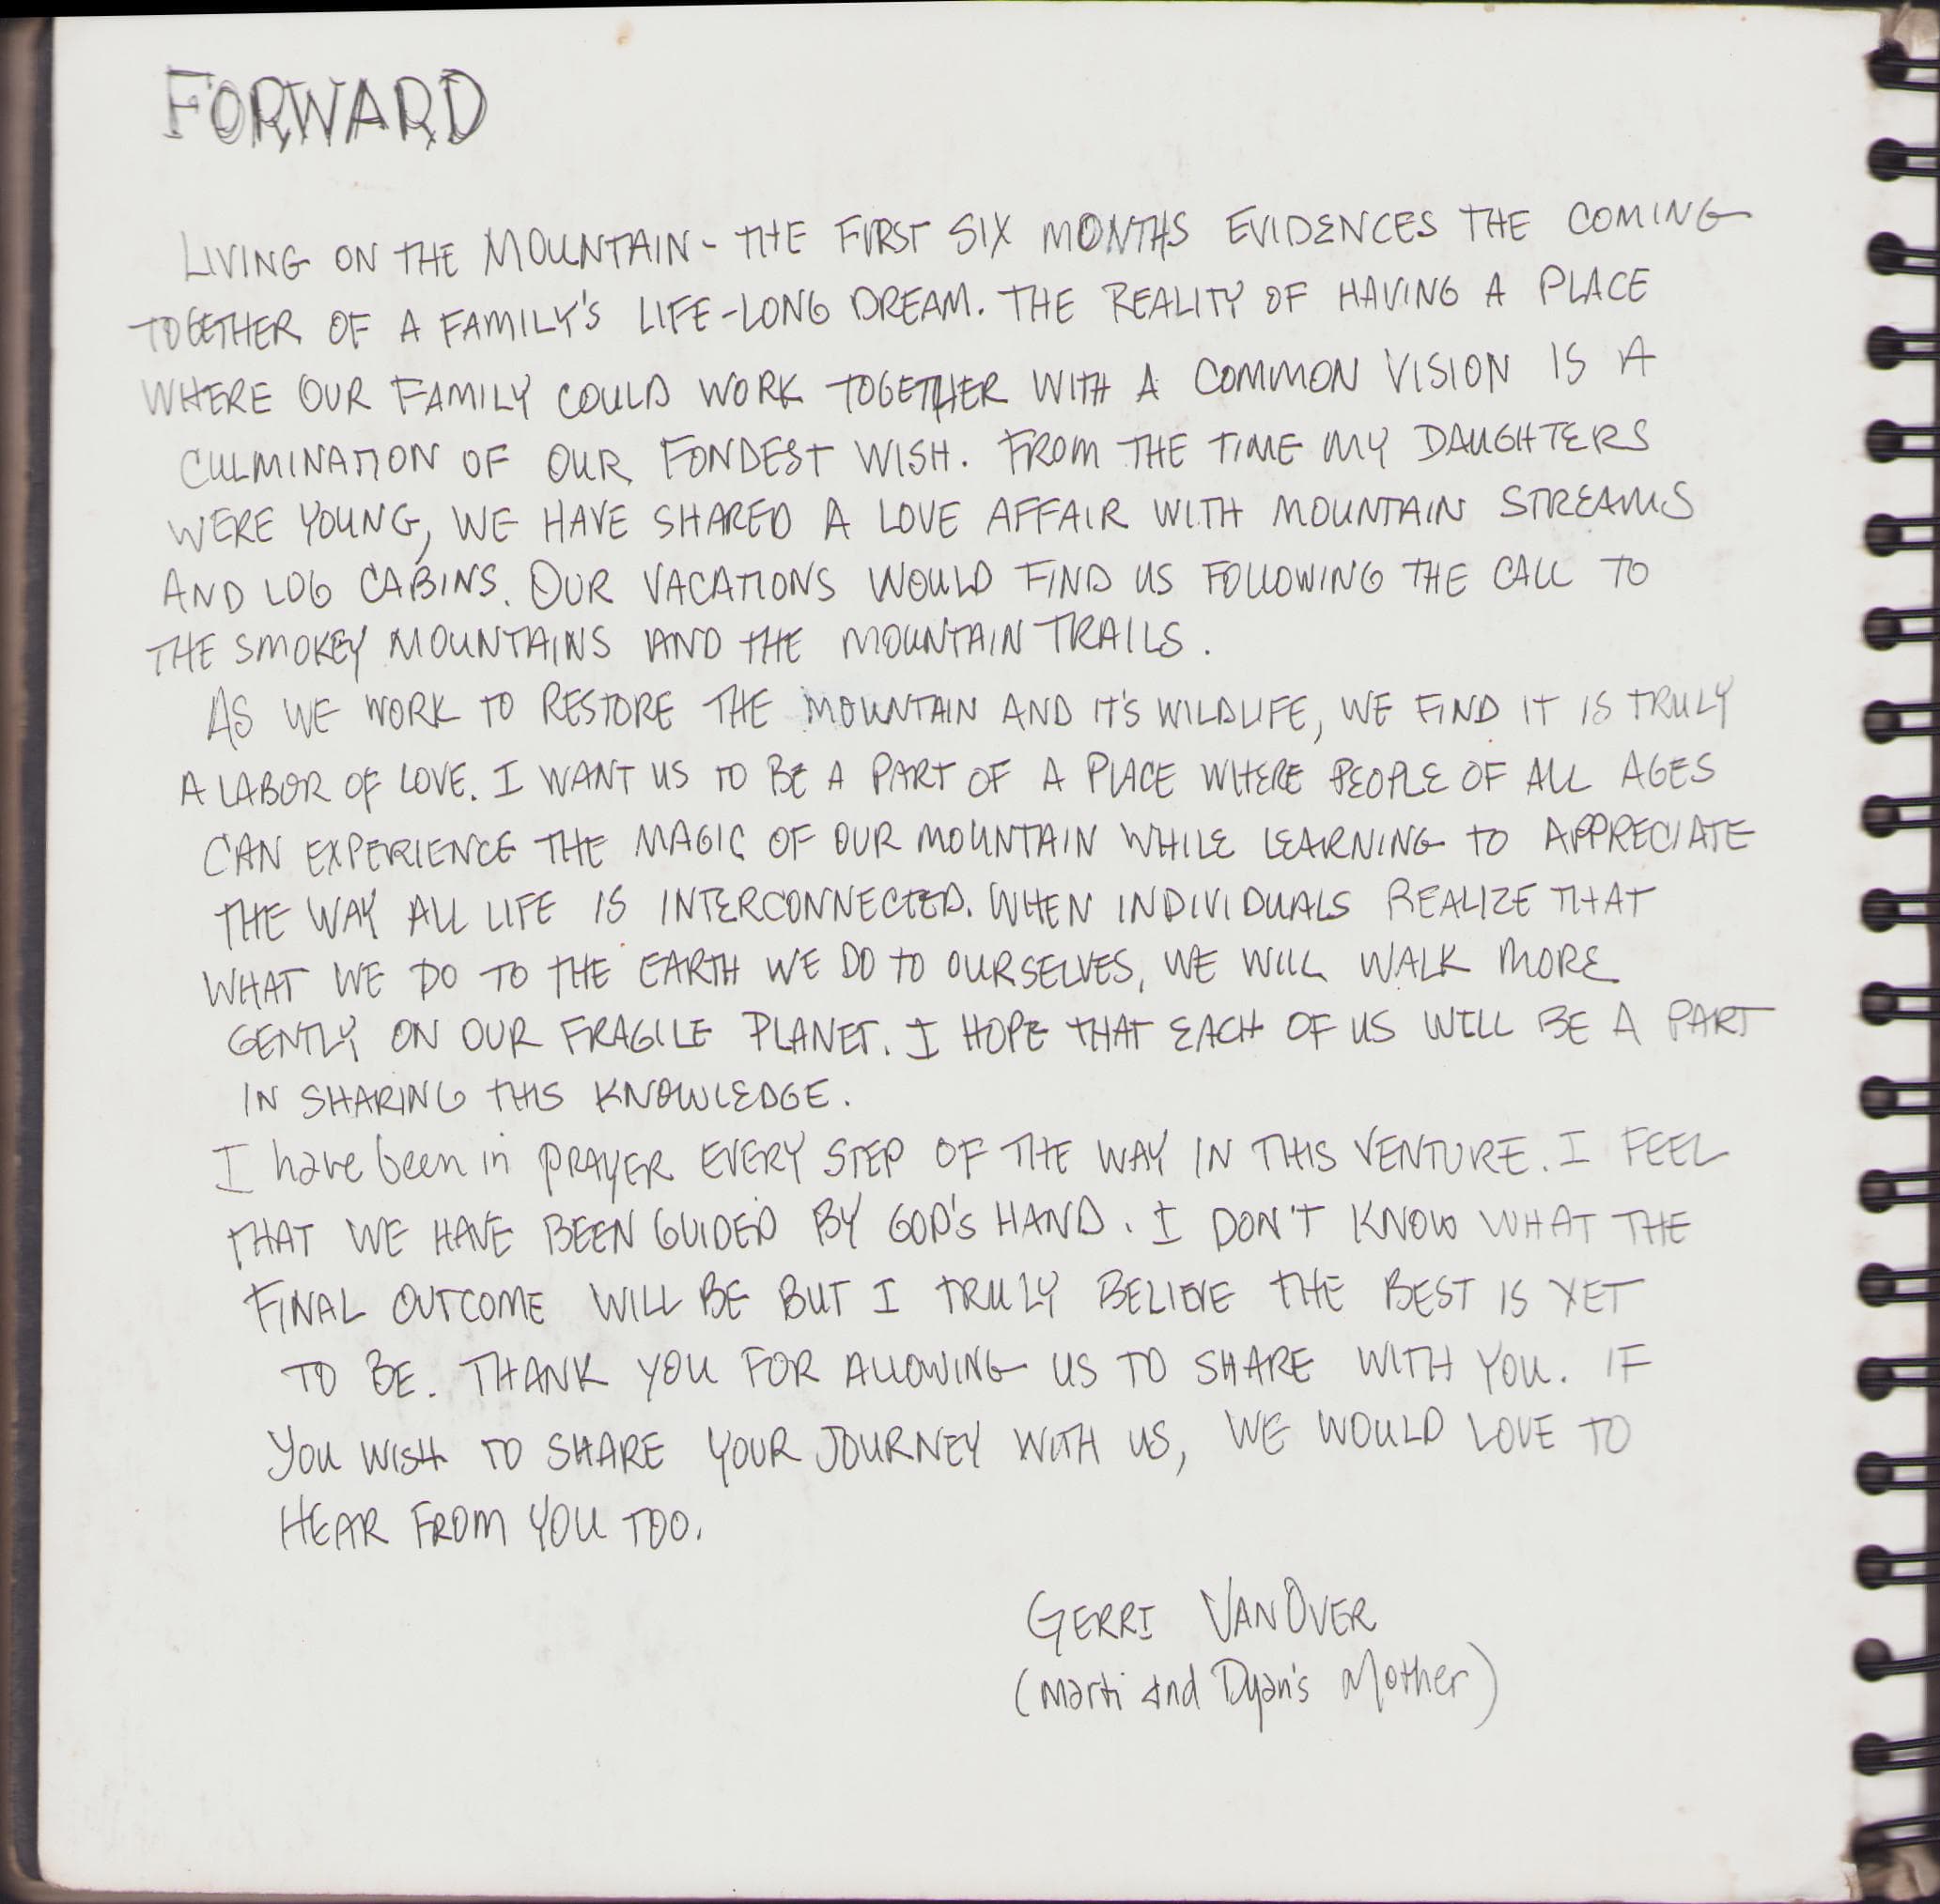 FORWARD
LIVING ON THE MOUNTAIN - THE FIRST SIX MONTHS EVIDENCES THE COMING
TOGETHER OF A FAMILY'S LIFE-LONG DREAM. THE REALITY OF HAVING A PLACE
WHERE OUR FAMILY COULD WORK TOGETHER WITH A COMMON VISION IS A
CULMINATION OF OUR FONDEST WISH. FROM THE TIME MY DAUGHTERS
WERE YOUNG, WE HAVE SHARED A LOVE AFFAIR WITH MOUNTAIN STREAMS
AND LOG CABINS. OUR VACATIONS WOULD FIND US FOLLOWING THE CALL TO
THE SMOKEY MOUNTAINS AND THE MOUNTAIN TRAILS.
AS WE WORK TO RESTORE THE MOUNTAIN AND IT'S WILDLIFE, WE FIND IT IS TRULY
A LABOR OF LOVE. I WANT US TO BE A PART OF A PLACE WHERE PEOPLE OF ALL AGES
CAN EXPERIENCE THE MAGIC OF OUR MOUNTAIN WHILE LEARNING TO APPRECIATE
THE WAY ALL LIFE IS INTERCONNECTED. WHEN INDIVIDUALS REALIZE THAT
WHAT WE DO TO THE EARTH WE DO TO OURSELVES, WE WILL WALK MORE
GENTLY ON OUR FRAGILE PLANET. I HOPE THAT EACH OF US WILL BE A PART
IN SHARING THIS KNOWLEDGE.
I have been in PRAYER EVERY STEP OF THE WAY IN THIS VENTURE. I FEEL
THAT WE HAVE BEEN GUIDED BY GOD'S HAND. I DON'T KNOW WHAT THE
FINAL OUTCOME WILL BE BUT I TRULY BELIEVE THE BEST IS YET
TO BE. THANK YOU FOR ALLOWING US TO SHARE WITH YOU. IF
YOU WISH TO SHARE YOUR JOURNEY WITH US, WE WOULD LOVE TO
HEAR FROM YOU TOO.
GERRI VANOVER
(Marti and Dyan's Mother)